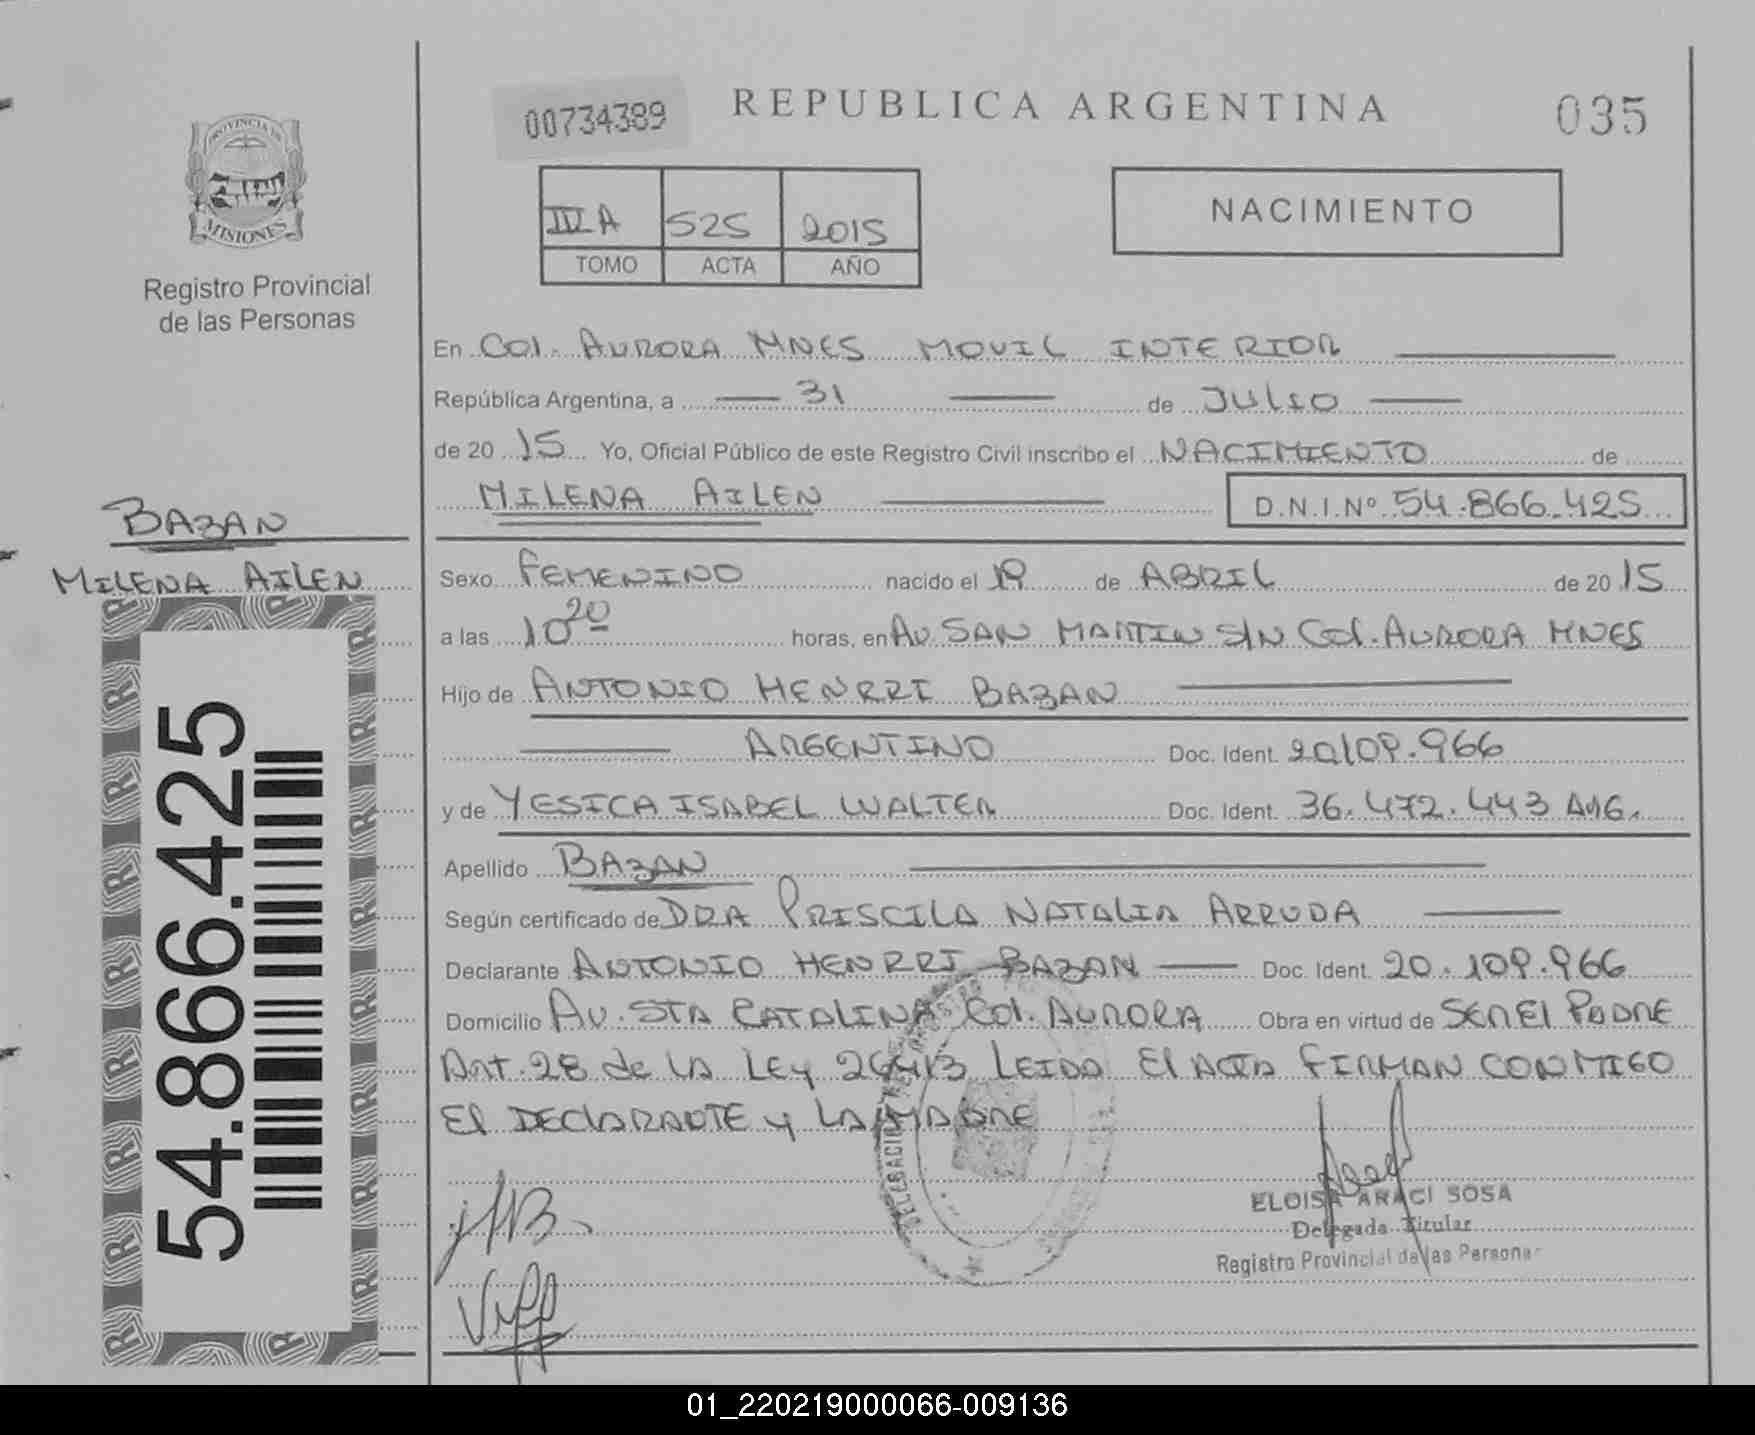 00734389
REPUBLICA ARGENTINA
035
PROVINCIA DE
MISIONES
Registro Provincial
de las Personas
IV A 525 2015
TOMO ACTA AÑO
NACIMIENTO
En COl. AURORA MNES MOVIL INTERIOR
República Argentina, a 31 de JULIO
de 20 15 Yo, Oficial Público de este Registro Civil inscribo el NACIMIENTO de
MILENA AILEN D.N.I.Nº 54.866.425
BAZAN
MILENA AILEN
54.866.425
Sexo FEMENINO nacido el 19 de ABRIL de 20 15
a las 10 20 horas, en AV. SAN MARTIN S/N COl. AURORA MNES
Hijo de ANTONIO HENRRI BAZAN
ARGENTINO Doc. Ident. 20109.966
y de YESICA ISABEL WALTER Doc. Ident. 36.472.443 ARG.
Apellido BAZAN
Según certificado de DRA PRISCILA NATALIA ARRUDA
Declarante ANTONIO HENRRI BAZAN Doc. Ident. 20.109.966
Domicilio AV. STA CATALINA COl. AURORA Obra en virtud de SER El PADRE
Art. 28 de LA LEy 26413 LEIDA El ACTA FIRMAN CONMIGO
El DEClARANTE y LA MADRE
ELOISA ARACI SOSA
Delegada Titular
Registro Provincial de las Personas
01_220219000066-009136